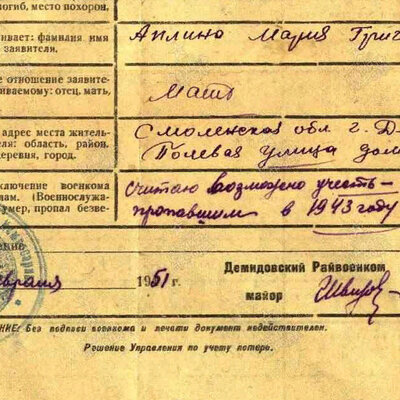 погиб, место похорон,
ивает: фамилия имя
заявителя.
Аплино Мария Григ
е отношение заявите-
иваемому: отец, мать,
Мать
адрес места житель-
теля: область, район,
деревня, город.
Смоленская обл г. Д
Полевая улица дом
ключение военкома
лам. (Военнослужа-
умер, пропал безве-
считаю возможно учесть-
пропавшим в 1943 году
ение
евраля 1951 г.
Демидовский Райвоенком
майор
НИЕ: Без подписи военкома и печати документ недействителен.
Решение Управления по учету потерь.